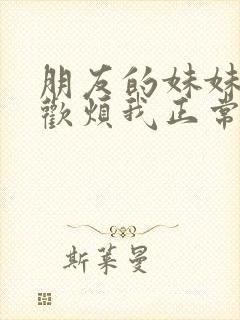 朋友的妹妹
歡煩我正常
斯萊曼